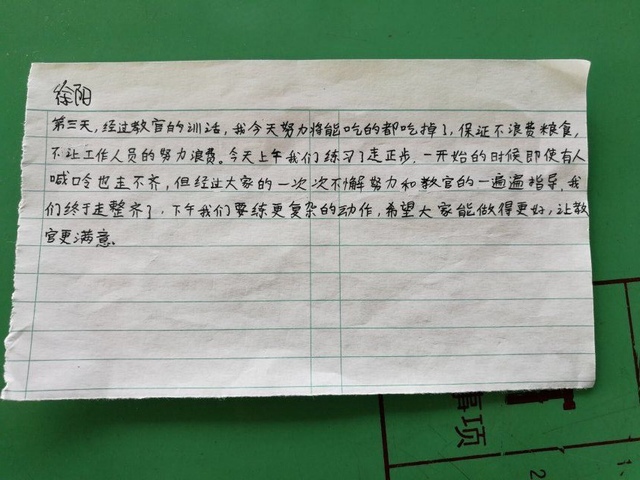 徐阳
第三天,经过教官的训话,我今天努力将能吃的都吃掉了,保证不浪费粮食,
不让工作人员的努力浪费。今天上午我们练习了走正步,一开始的时候即使有人
喊口令也走不齐,但经过大家的一次次不懈努力和教官的一遍遍指导,我
们终于走整齐了,下午我们要练更复杂的动作,希望大家能做得更好,让教
官更满意。
事项
2